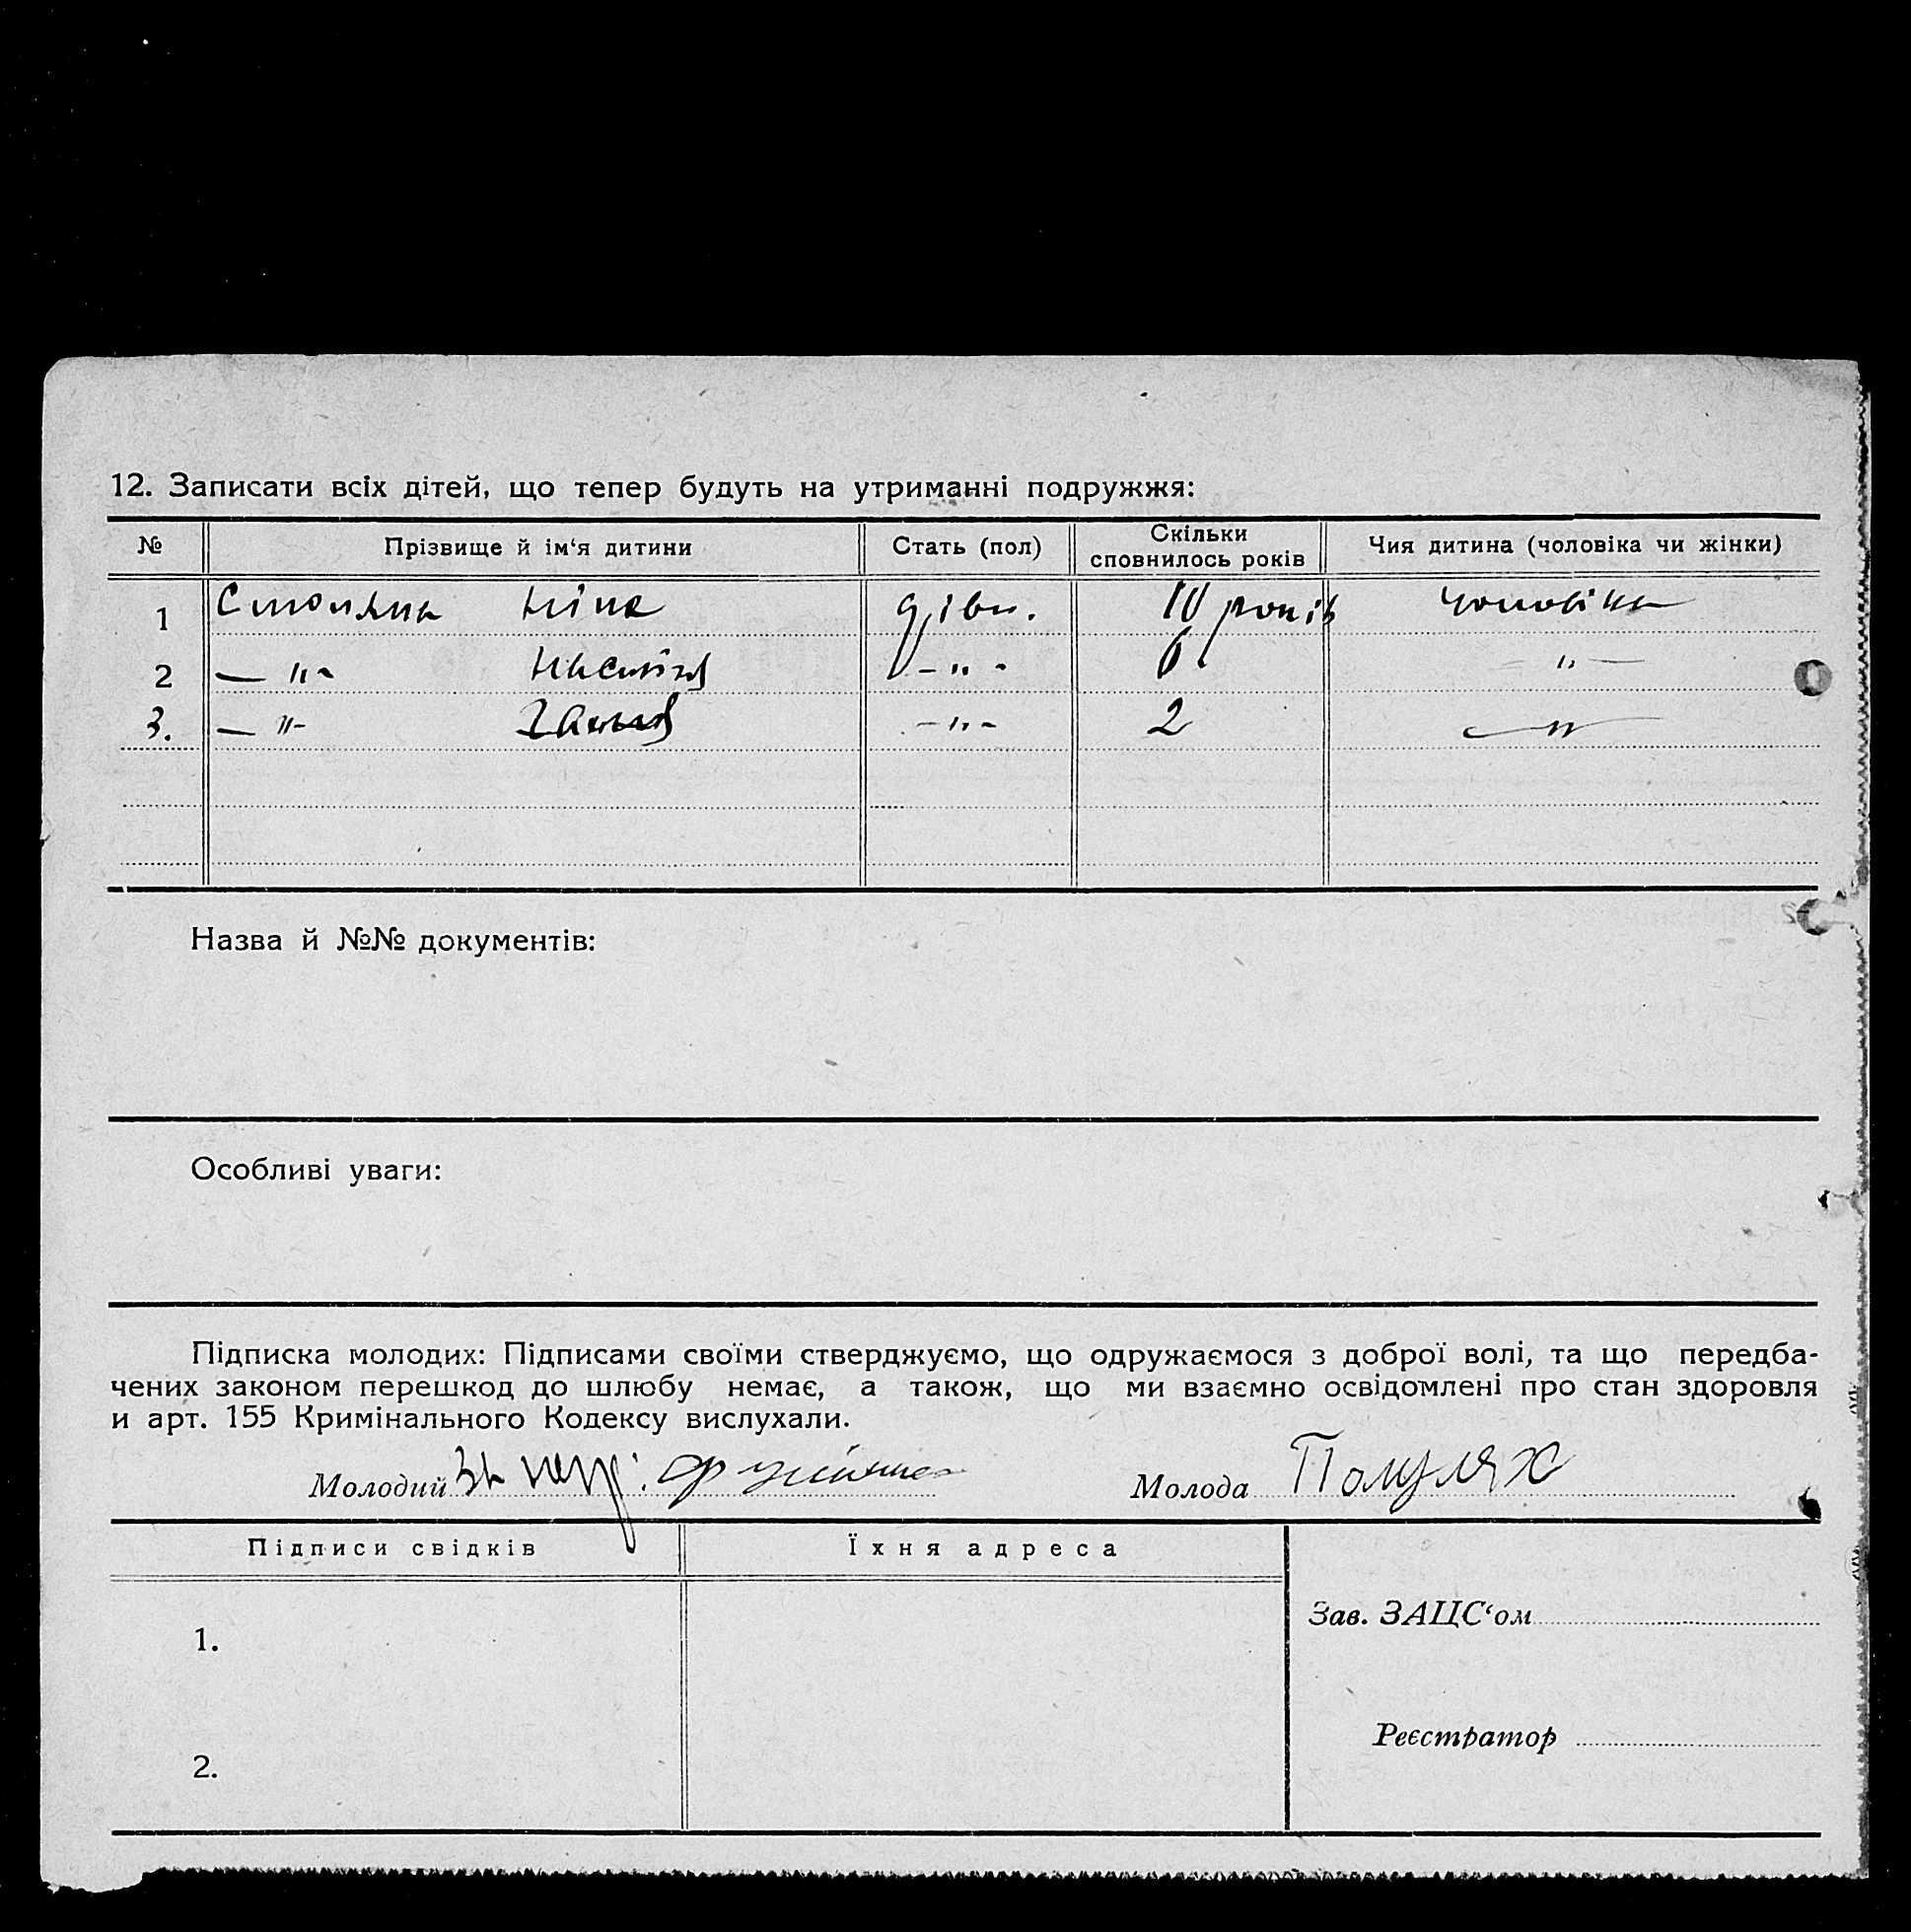 12. Записати всіх дітей, що тепер будуть на утриманні подружжя:
№ Прізвище й ім‘я дитини Стать (пол) Скільки сповнилось років Чия дитина (чоловіка чи жінки)
1 Ніна дівч. 10 років чоловіка
2 — „ - - „ - 6 - „ —
3. — „ - - „ - 2 — „
Назва й №№ документів:
Особливі уваги:
Підписка молодих: Підписами своїми стверджуємо, що одружаємося з доброї волі, та що передба-
чених законом перешкод до шлюбу немає, а також, що ми взаємно освідомлені про стан здоровля
и арт. 155 Кримінального Кодексу вислухали.
Молодий Молода
Підписи свідків Їхня адреса
Зав. ЗАЦС‘ом
1.
Реєстратор
2.